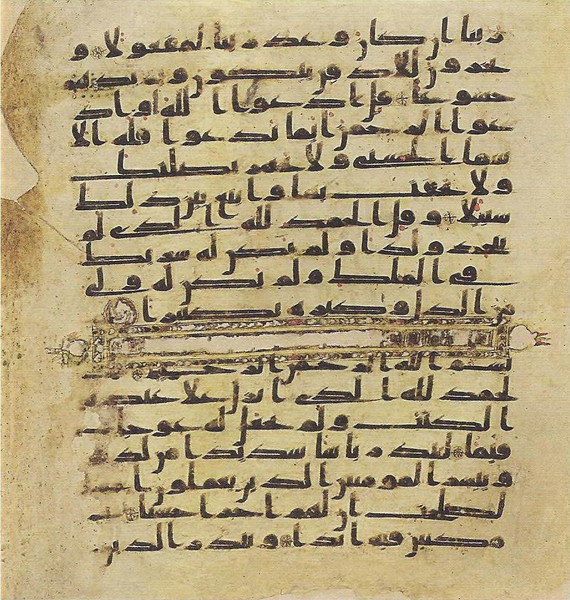 ربنا ان كان وعد ربنا لمفعولا و
يخرون للاذقن يبكون ويزيدهم
خشوعا قل ادعوا الله او اد
عوا الرحمن ايا ما تدعوا فله الا
سما الحسنى ولا تجهر بصلتك
ولا تخفت بها وابتغ بين ذلك
سبيلا وقل الحمد لله الذي لم
يتخذ ولدا ولم يكن له شريك
في الملك ولم يكن له ولي
من الذل وكبره تكبيرا
بسم الله الرحمن الرحيم ا
لحمد لله الذي انزل على عبده
الكتب ولم يجعل له عوجا
قيما لينذر باسا شديدا من لدنه
ويبشر المومنين الذين يعملون ا
لصلحت ان لهم اجرا حسنا
مكثين فيه ابدا وينذر الذين